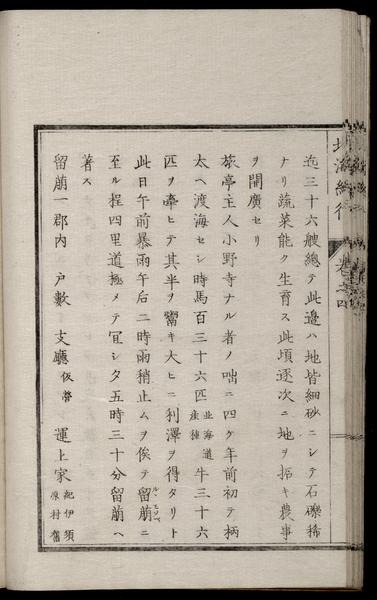 北海紀行 巻之四
迄三十六艘總テ此邉ハ地皆細砂ニシテ石礫稀
ナリ蔬菜能ク生育ス此頃逐次ニ地ヲ拓キ農事
ヲ開廣セリ
旅亭主人小野寺ナル者ノ咄ニ四ケ年前初テ柄
太ヘ渡海セシ時馬百三十六匹北海道産種牛三十六
匹ヲ牽ヒテ其半ヲ鬻キ大ヒニ利澤ヲ得タリト
此日午前暴雨午后二時雨稍止ムヲ俟テ留萠ニ
至ル程四里道極メテ冝シタ五時三十分留萠ヘ
著ス
留萠一郡内 戸數 支廳假營 運上家